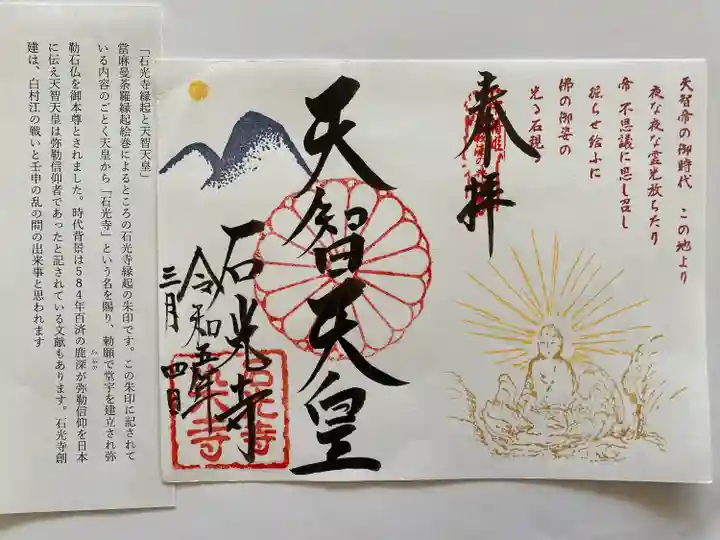 天智帝の御時代　この地より
夜な夜な霊光放ちたり
帝 不思議に思し召し
掘らせ給ふに
佛の御姿の
光る石現る
奉拝
天智天皇
石光寺
令和五年
三月四日
石光寺
「石光寺縁起と天智天皇」
當麻曼荼羅縁起絵巻によるところの石光寺縁起の朱印です。この朱印に記されて
いる内容のごとく天皇から「石光寺」という名を賜り、勅願で堂宇を建立され弥
勒石仏を御本尊とされました。時代背景は５８４年百済の鹿深が弥勒信仰を日本
に伝え天智天皇は弥勒信仰者であったと記されている文献もあります。石光寺創
建は、白村江の戦いと壬申の乱の間の出来事と思われます